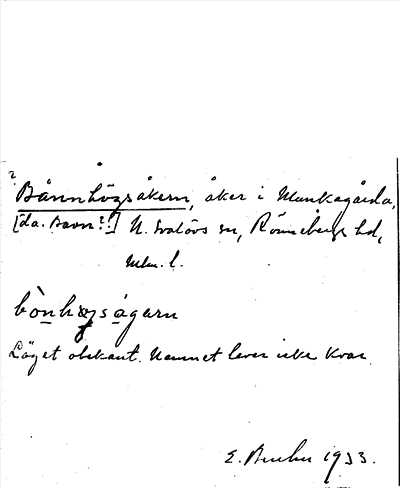 ?
Bånnhögsåkern, åker i Munkagårda,
[da. Bavn?!] N. Svalövs sn, Rönnebergs hd,
Mlm. l.
bònhøgsågarn
Läget obekant. Namnet lever icke kvar.
E. 1933.